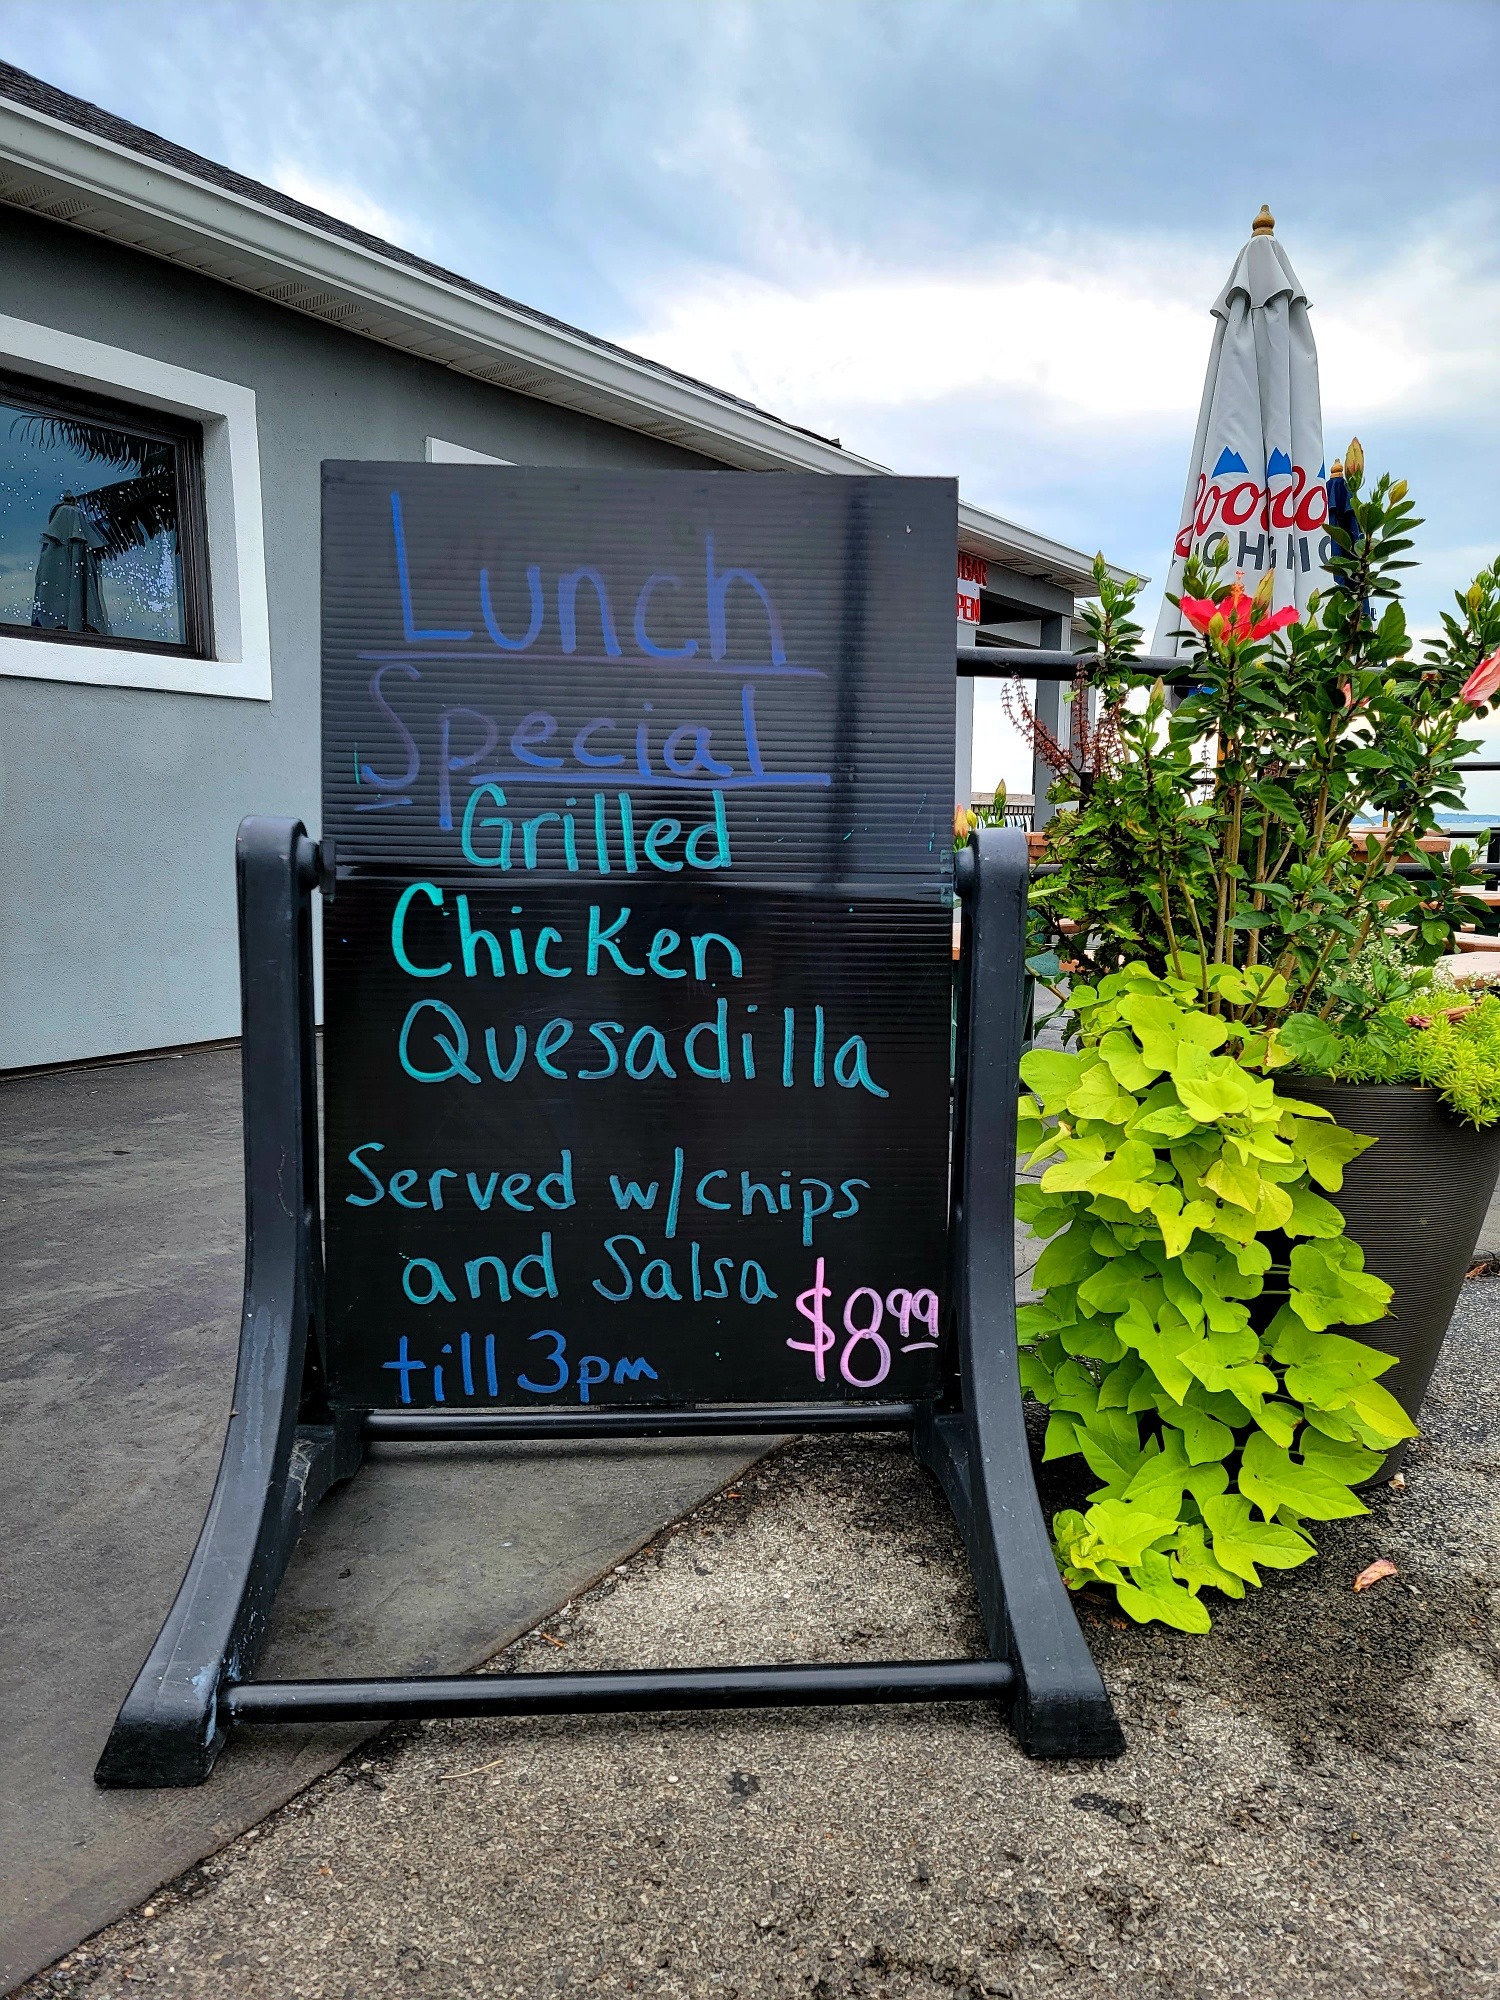 Lunch
Special
Grilled
Chicken
Quesadilla
Served w/chips
and Salsa
$8.99
till 3pm
BAR